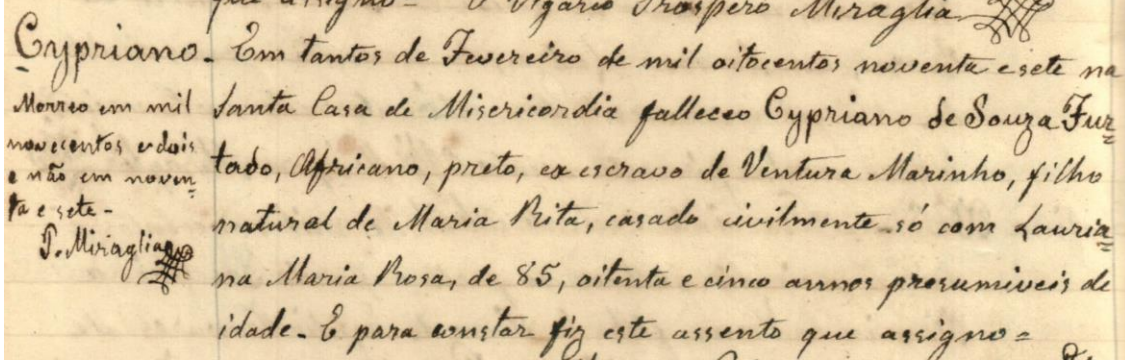 que assigno - O Vigario Prospero Miraglia
Cypriano.
Morreo em mil
novecentos e dois
e não em noven=
ta e sete -
P. Miraglia
Em tantos de Fevereiro de mil oitocentos noventa e sete na
Santa Casa de Misericordia falleceo Cypriano de Souza Fur=
tado, Africano, preto, ex escravo de Ventura Marinho, filho
natural de Maria Rita, casado civilmente só com Lauria=
na Maria Rosa, de 85, oitenta e cinco annos presumiveis de
idade. E para constar fiz este assento que assigno=